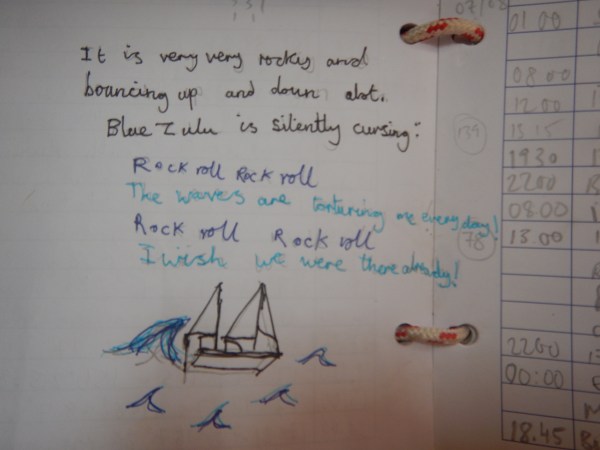 It is very very rocky and
bouncing up and down alot.
Blue Zulu is silently cursing:
Rock roll Rock roll
The waves are torturing me every day!
Rock roll Rock roll
I wish we were there already!
139
78
07/08
01 00
08 00
12.00
15 15
1930
2200
08:00
13.00
2200
00:00
18.45